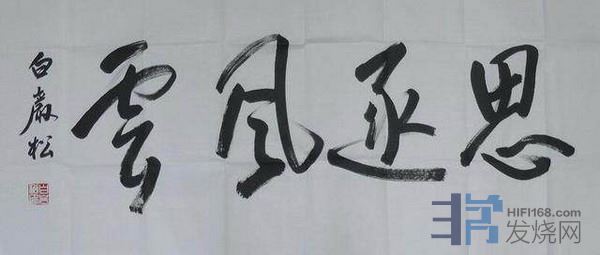 思逐風雲
白巖松
HIFI168.com
发烧网